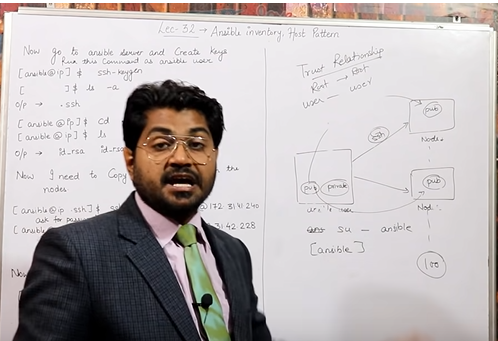 Lec-32 → Ansible inventory, Host Pattern
Now go to ansible server and Create keys
Run this Command as ansible user
[ansible@ip] $ ssh-keygen
[ ] $ ls -a
o/p → .ssh
[ansible@ip] $ cd
[ansible@ip] $ ls
o/p → id_rsa id_rsa
Now I need to Copy the
nodes
[ansible@ip .ssh] $ @172.31.41.240
ask for
[ansible 31.42.228
Now
Trust Relationship
Root → Root
user — user
pub
Node
ssh
pub private
pub
Node
su - ansible
[ansible]
100